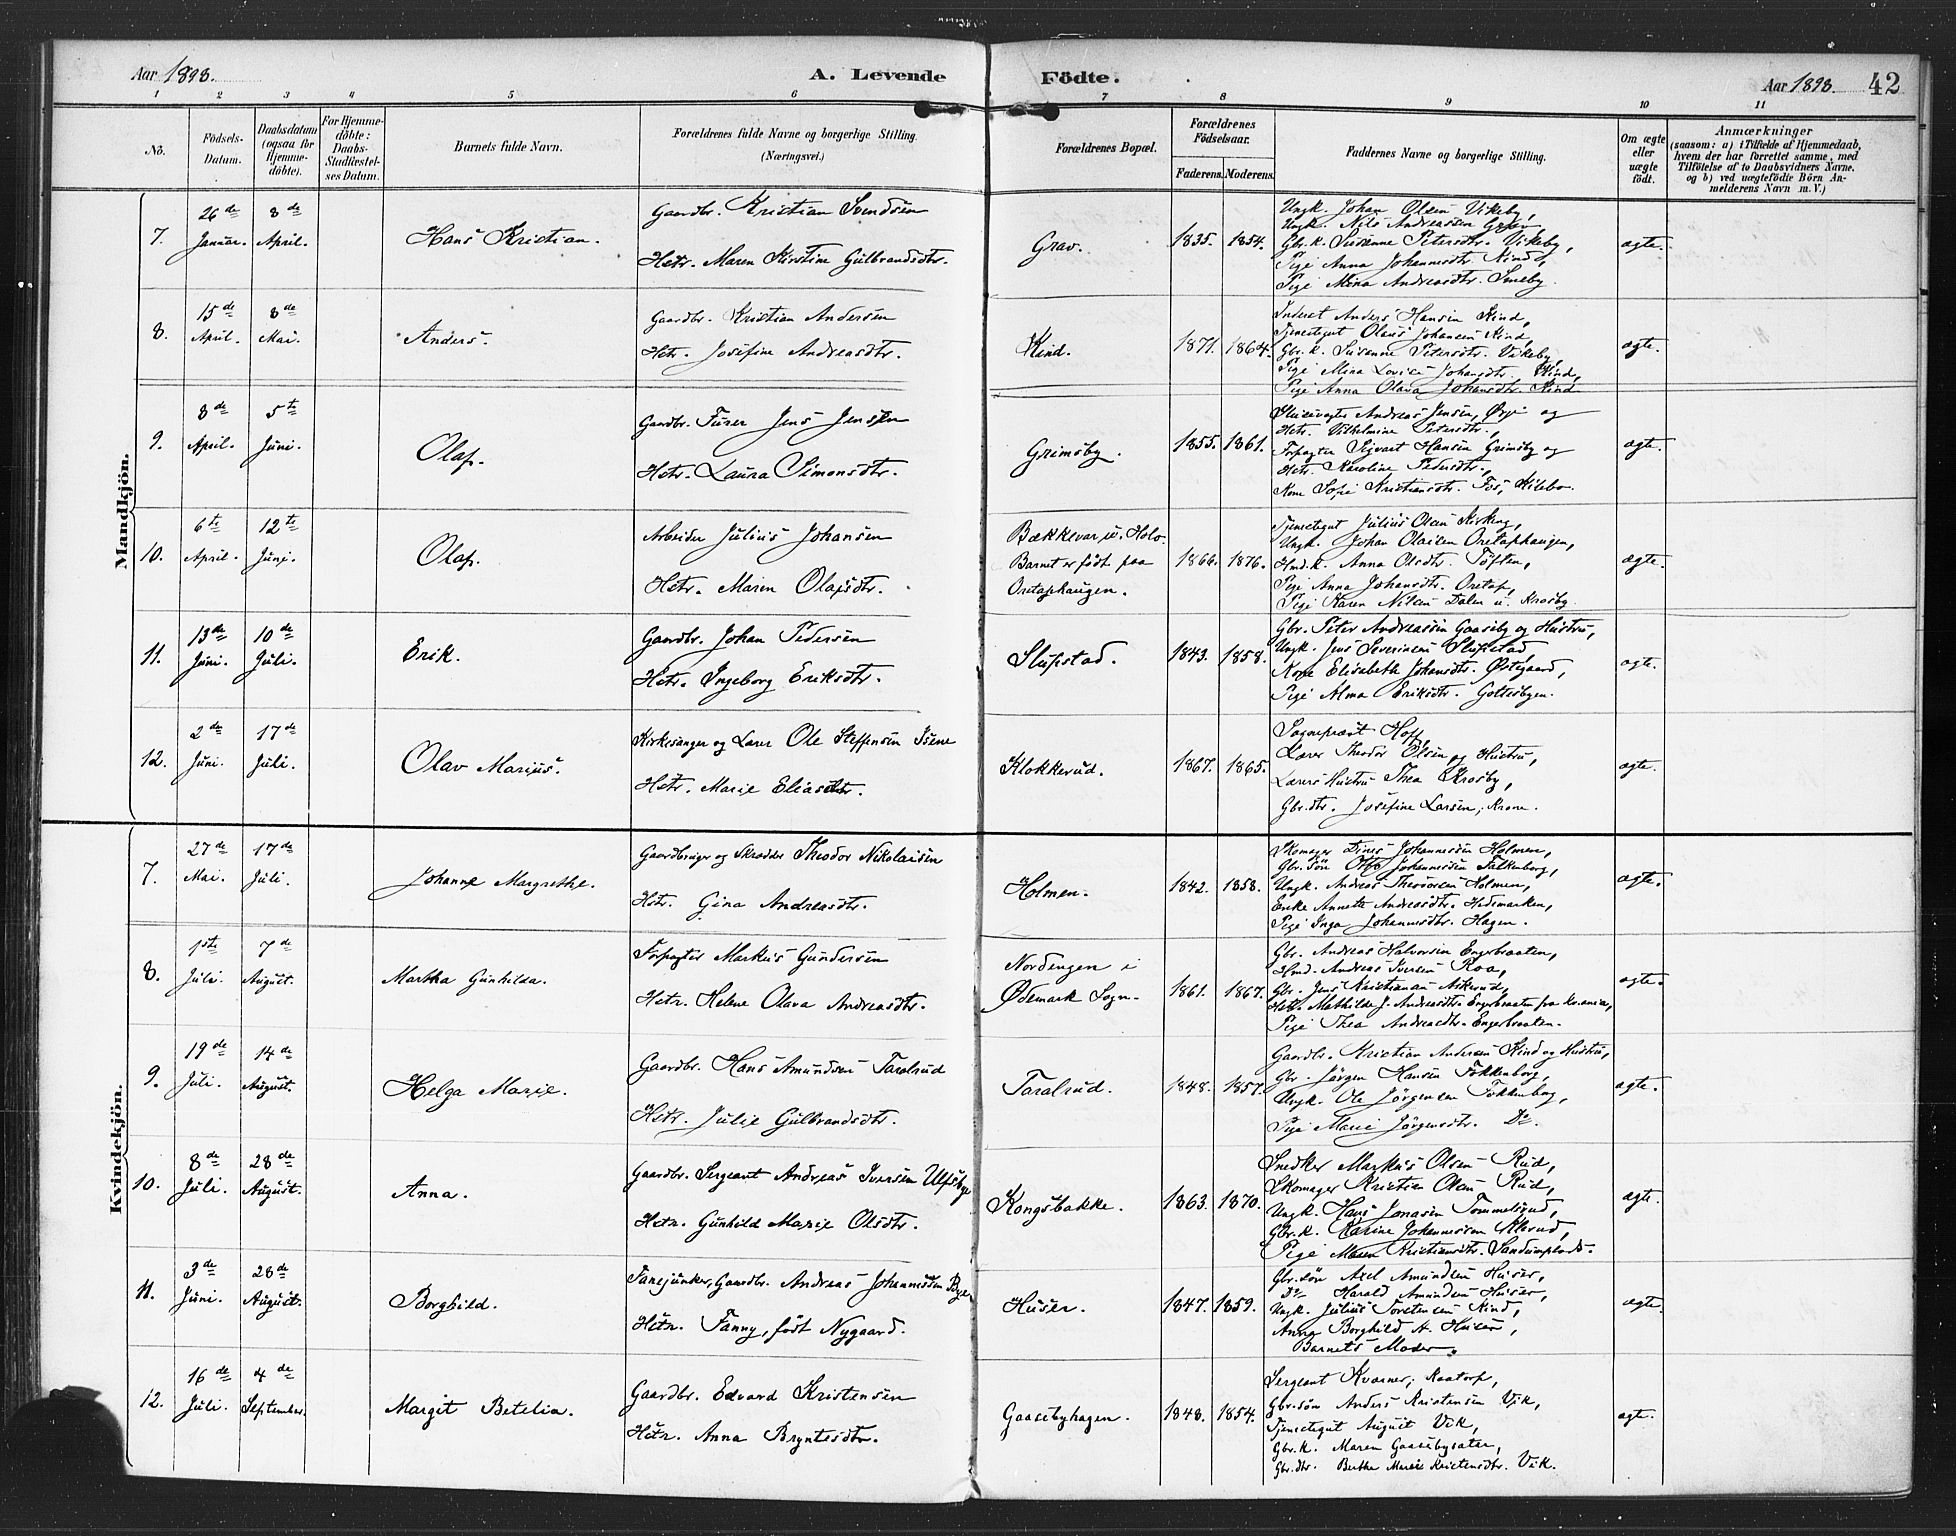 Aar 1898. A. Levende Födte. Aar 1898. 42
1 2 3 4 5 6 7 8 9 10 11
No.
Födsels-Datum.
Daabsdatum (ogsaa for Hjemme-döbte).
For Hjemme-döbte: Daabs-Stadfæstel-ses Datum.
Barnets fulde Navn.
Forældrenes fulde Navne og borgerlige Stilling. (Næringsvei.)
Forældrenes Bopæl.
Forældrenes Födselsaar.
Faderens. Moderens.
Faddernes Navne og borgerlige Stilling.
Om ægte eller uægte födt.
Anmærkninger
(saasom: a) i Tilfælde af Hjemmedaab, hvem der har forrettet samme, med Tilföielse af to Daabsvidners Navne, og b) ved uægtefödte Börn An-melderens Navn m. V.)
Mandkjön.
7. 26de Januar. 3de April. Hans Kristian.
Gaardbr. Kristian Svendsen
Hstr. Maren Kirstine Gulbrandsdtr.
Grav. 1835. 1854.
Ungk. Johan Olsen Vikeby,
Ungk. Nils Andreassen Grav
Gbr.k. Susanne Petersdtr. Vikeby,
Pige Anna Johannesdtr. Kind,
Pige Mina Andreasdtr. Smeby.
ægte.
8. 15de April. 8de Mai. Anders.
Gaardbr. Kristian Andersen
Hstr. Josefine Andreasdtr.
Kind. 1871. 1864.
Inderst Anders Hansen Kind,
Tjenestegut Olaus Johansen Kind,
Gbr.k. Susanne Petersdtr. Vikeby,
Pige Mina Lovise Johansdtr. Kind,
Pige Anna Olava Johansdtr. Kind
ægte.
9. 3de April. 5te Juni. Olaf.
Gaardbr. Furer Jens Jensen
Hstr. Laura Simonsdtr.
Grimsby. 1855. 1861.
Slusevogter Andreas Jensen, Ørje og
Hstr. Vilhelmine Petersdtr.,
Forpagter Sigvart Hansen Grimsby og
Hstr. Karoline Pedersdtr.,
Kone Sofie Kristiansdtr. Fos, Kilebo.
ægte.
10. 6te April. 12te Juni. Olaf.
Arbeider Julius Johansen
Hstr. Maren Olafsdtr.
Bækkevar u. Holo.
Barnet er födt paa
Oretaphaugen.
1866. 1876.
Tjenestegut Julius Olsen Kirkeng,
Ungk. Johan Olausen Oretaphaugen,
Hmd.k. Anna Olsdtr. Töften,
Pige Anna Johansdtr. Oretap,
Pige Karen Nilsen Dalen u. Krosby
ægte.
11. 13de Juni. 10de Juli. Erik.
Gaardbr. Johan Pedersen
Hstr. Ingeborg Eriksdtr.
Slupstad. 1843. 1858.
Gbr. Peter Andreassen Gaaseby og Hustru,
Ungk. Jens Severinsen Slupstad
Kone Elisabeth Johansdtr. Østgaard,
Pige Alma Eriksdtr. Goltesbyen.
ægte.
12. 2de Juni. 17de Juli. Olav Marius.
Kirkesanger og Lærer Ole Steffensen Isene
Hstr. Marie Eliasdtr.
Klokkerud. 1867. 1865.
Sogneprest Hoff,
Lærer Theodor Olsen og Hustru,
Lærers Hustru Thea Krosby,
Gbr.dtr. Josefine Larsen, Krone.
ægte.
Kvindekjön.
7. 27de Mai. 17de Juli. Johanne Margrethe.
Gaardbruger og Skrædder Theodor Nikolaisen
Hstr. Gina Andreasdtr.
Holmen. 1842. 1858.
Skomager Dines Johannessen Holmen,
Gbr.sön Olaf Johannessen Falkenborg,
Ungk. Andreas Theodorsen Holmen,
Enke Annette Andreasdtr. Hedemarken,
Pige Inga Johannesdtr. Hagen.
ægte.
8. 1ste Juli. 7de August. Martha Gunhilda.
Forpagter Markus Gundersen
Hstr. Helene Olava Andreasdtr.
Nordengen i
Ødemark Sogn.
1861. 1867.
Gbr. Andreas Halvorsen Engerbraaten,
Hmd. Andreas Iversen Roa,
Gbr. Jens Kristiansen Askerud,
Hstr. Mathilde J. Andreasdtr. Engerbraaten fra Kr.ania,
Pige Thea Andreasdtr. Engerbraaten.
ægte.
9. 19de Juli. 14de August. Helga Marie.
Gaardbr. Hans Amundsen Taralrud
Hstr. Julie Gulbrandsdtr.
Taralrud. 1848. 1857.
Gaardbr. Kristian Andersen Kind og Hustru,
Gbr. Jörgen Hansen Fokkenborg,
Ungk. Ole Jörgensen Fokkenborg,
Pige Marie Jörgensdtr. Do.
ægte.
10. 8de Juli. 28de August. Anna.
Gaardbr. Sergeant Andreas Iversen Ulfsbye
Hstr. Gunhild Marie Olsdtr.
Kongsbakke. 1863. 1870.
Snedker Markus Olsen Rud,
Skomager Kristian Olsen Rud,
Ungk. Hans Jonasen Tommelsrud,
Gbr.k. Karine Johannessen Aserud,
Pige Maren Kristiansdtr. Sandumplads.
ægte.
11. 3de Juni. 28de August. Borghild.
Fanejunker, Gaardbr. Andreas Johannessen Bye
Hstr. Fanny, födt Nygaard.
Huser. 1847. 1859.
Gbr.sön Axel Amundsen Huser,
Do Harald Amundsen Huser,
Ungk. Julius Torstensen Kind,
Anna Borghild A. Huser,
Barnets Moder.
ægte.
12. 16de Juli. 4de September. Margit Betelia.
Gaardbr. Edvard Kristensen
Hstr. Anna Bryntesdtr.
Gaasebyhagen. 1848. 1854.
Sergeant Kvarner, Raatorp,
Gbr.sön Anders Kristensen Vik,
Tjenestegut August Vik,
Gbr.k. Maren Gaasebysater,
Gbr.dtr. Berthe Marie Kristensdtr. Vik.
ægte.